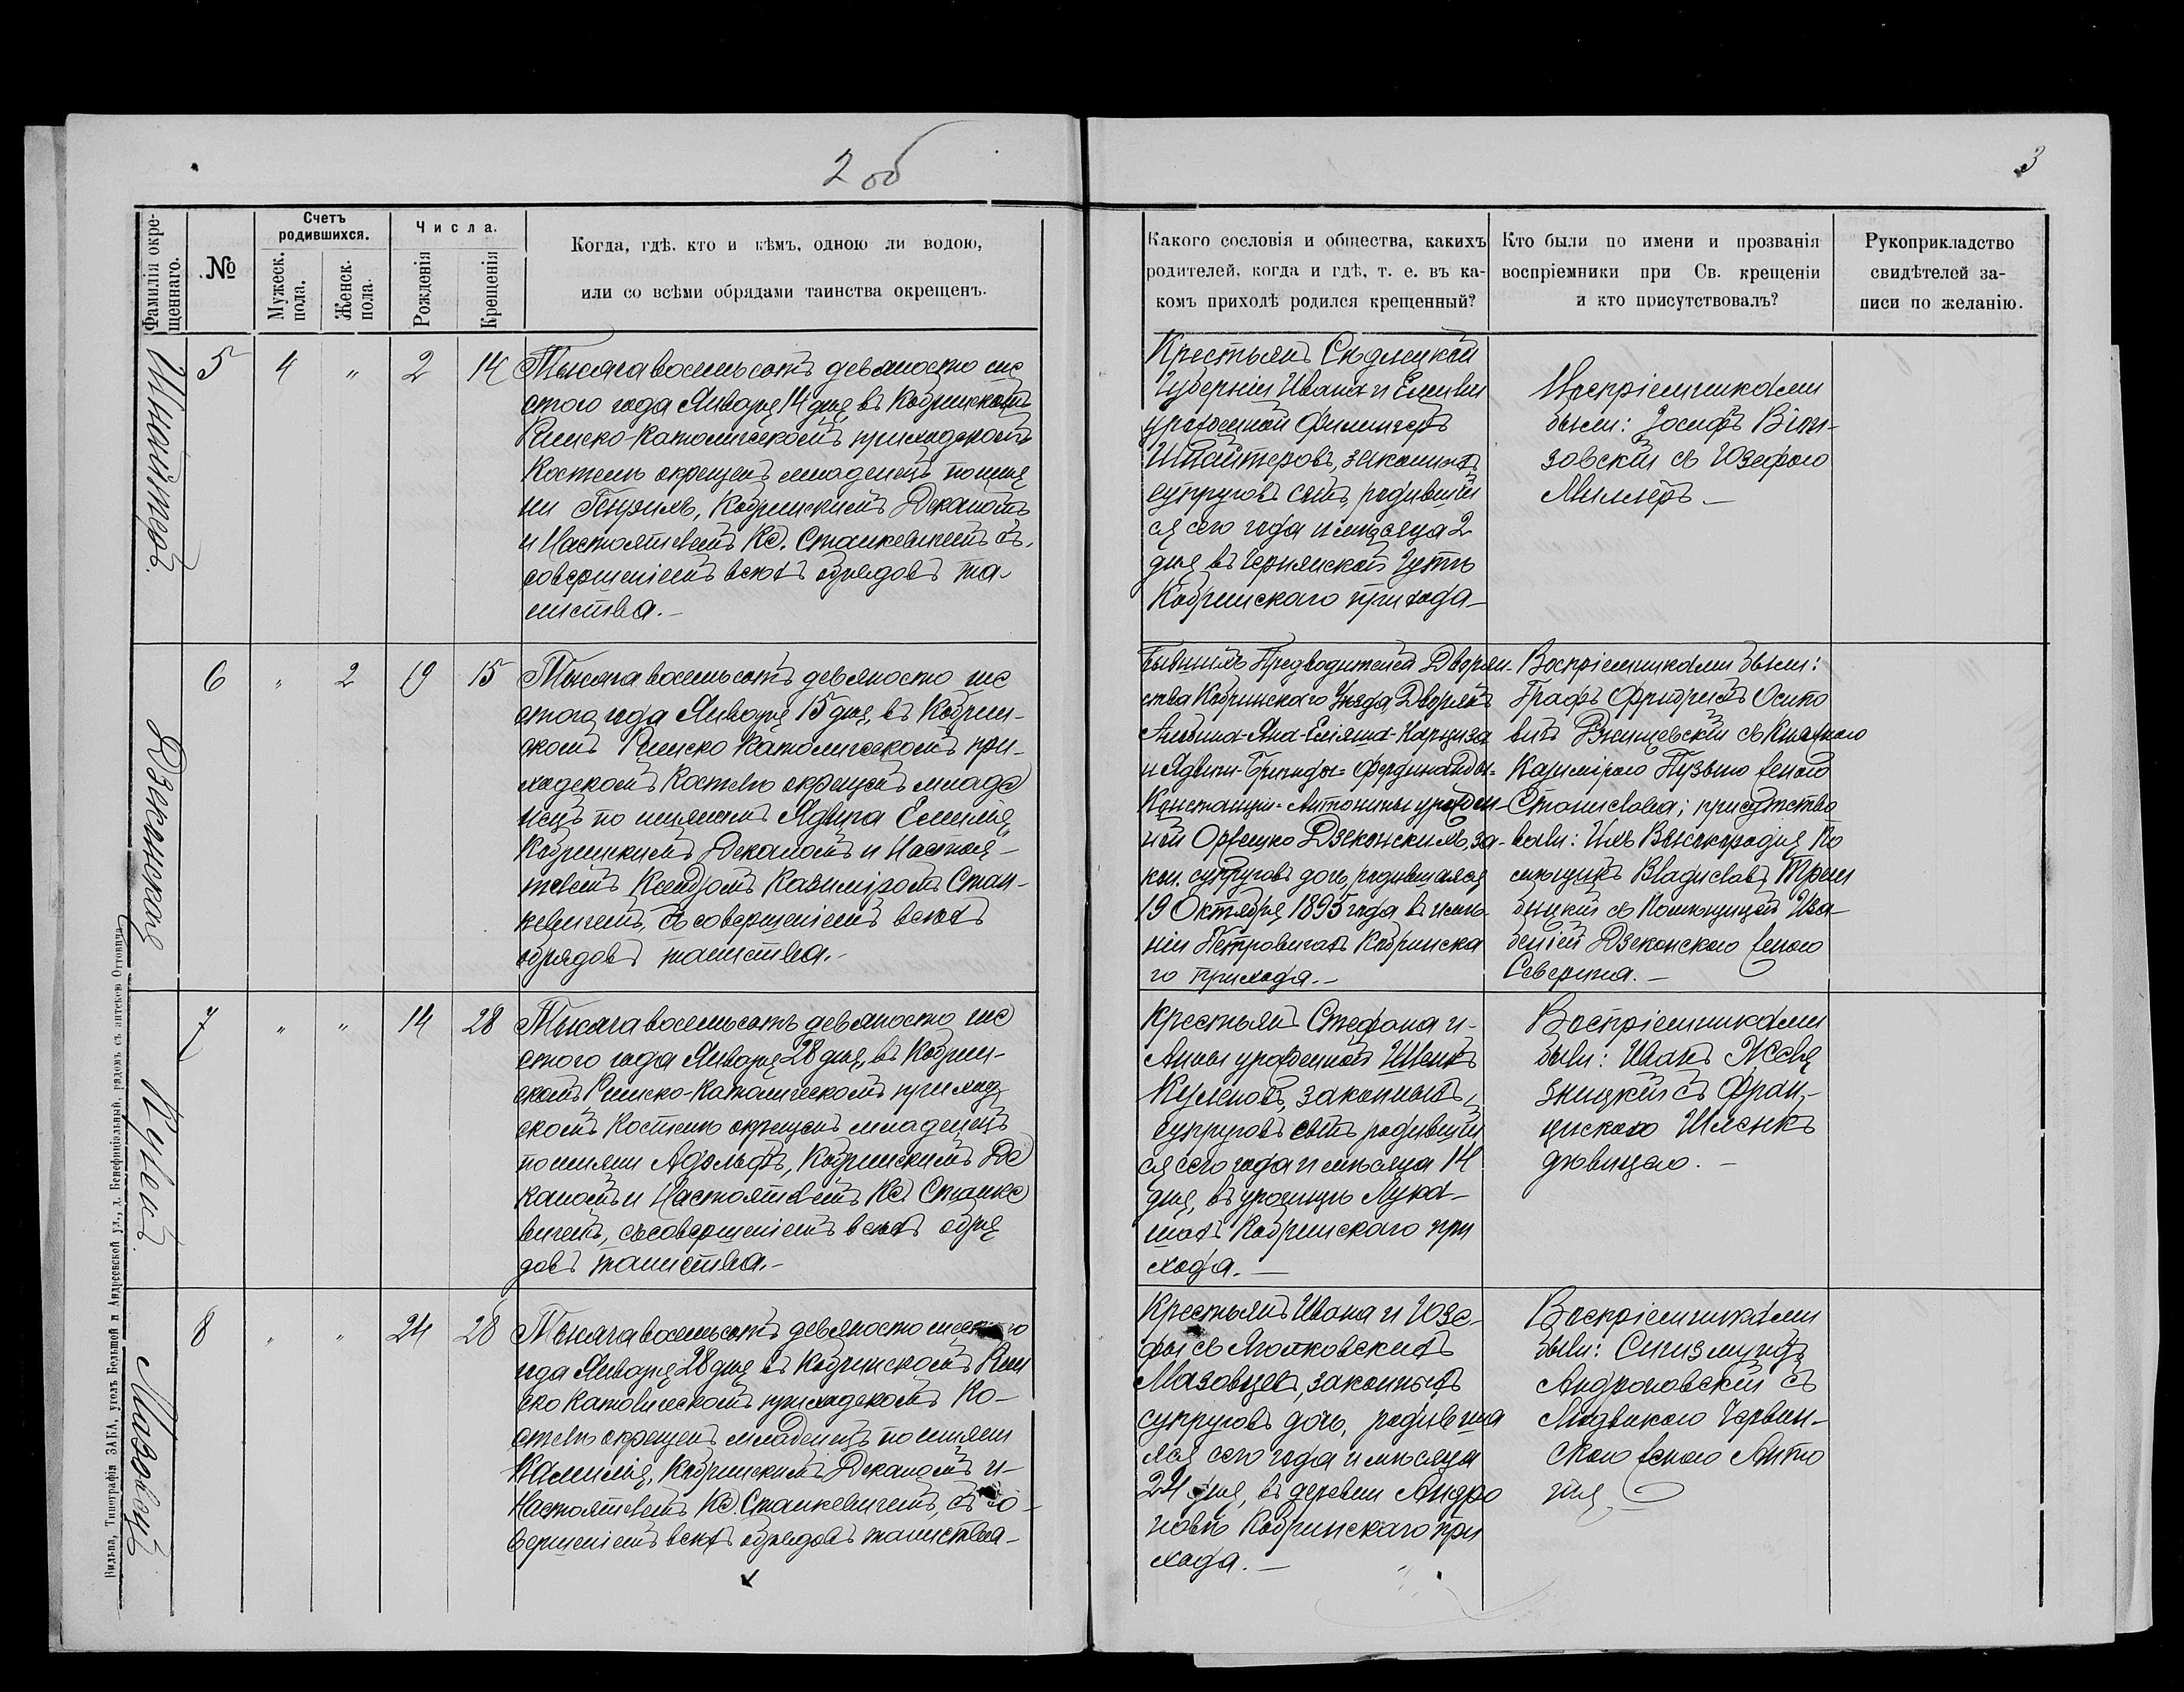 2 об
3
Фамилія окре-
щеннаго.
№
Счетъ
родившихся.
Мужеск.
пола.
Женск.
пола.
Числа.
Рожденія
Крещенія
Когда, гдѣ, кто и кѣмъ, одною ли водою,
или со всѣми обрядами таинства окрещенъ.
Какого сословія и общества, какихъ
родителей, когда и гдѣ, т. е. въ ка-
комъ приходѣ родился крещенный?
Кто были по имени и прозванія
воспріемники при Св. крещеніи
и кто присутствовалъ?
Рукоприкладство
свидѣтелей за-
писи по желанію.
5 4 " 2 14
Тысяча восемьсотъ девяносто ше
стого года Января 14 дня, въ Кобринскомъ
Римско-Католическомъ приходскомъ
Костелѣ окрещенъ младенецъ по име
ни Генрихъ, Кобринскимъ Деканомъ
и Настоятелемъ Кс. Станкевичемъ съ
совершеніемъ всѣхъ обрядовъ та-
инства.-
Крестьянъ Сѣдлецкой
Губерніи Ивана и Емиліи
урожденной
законныхъ
супруговъ сынъ, родившій
ся сего года и мѣсяца 2
дня въ Чернянской Гутѣ
Кобринскаго прихода-
Воспріемниками
были: Іосифъ
съ Юзефою
Миллеръ-
Дзеконская
6 " 2 19 15
Тысяча восемьсотъ девяносто ше
стого года Января 15 дня, въ Кобрин-
скомъ Римско Католическомъ при-
ходскомъ Костелѣ окрещенъ младе
нецъ по именамъ Ядвига Емилія,
Кобринскимъ Деканомъ и Настоя-
телемъ Ксендзомъ Казиміромъ Стан-
кевичемъ, съ совершеніемъ всѣхъ
обрядовъ таинства.-
Бывшимъ Предводителей Дворян-
ства Кобринскаго Уѣзда, Дворянъ
и Ядвиги-Бригиды-Фердинанды-
Констанціи-Антонины урожден-
ной Оржешко Дзеконскихъ, за-
кон. супруговъ дочь, родившаяся
19 Октября 1895 года въ имѣ-
ніи Петровичахъ Кобринска
го прихода.-
Воспріемниками были:
Графъ Фридрихъ Осипо
вичъ Ржищевскій съ Княжною
Казимірою Пузыно женою
Станислава; присутство
вали: Ихъ Высокородія По
мѣщикъ Владиславъ Трем
бицкій съ Помѣщицей Иза-
Дзеконскою женою
Северина.-
Кулекъ
7 " " 14 28
Тысяча восемьсотъ девяносто ше
стого года Января 28 дня, въ Кобрин-
скомъ Римско-Католическомъ приход
скомъ Костелѣ окрещенъ младенецъ
по имени Адольфъ, Кобринскимъ Де
каномъ и Настоятелемъ Кс. Станке
вичемъ, съ совершеніемъ всѣхъ обря
довъ таинства.-
Крестьянъ Стефана и-
Анны урожденной
законныхъ
супруговъ сынъ родившій
ся сего года и мѣсяца 14
дня, въ урочищѣ Лука-
шахъ Кобринскаго при
хода.-
Воспріемниками
были: Иванъ
съ Фран-
цискою
дѣвицею.-
Мазовецъ
8 " " 24 28
Тысяча восемьсотъ девяносто шестого
года Января 28 дня въ Кобринскомъ Рим
ско Католическомъ приходскомъ Ко-
стелѣ окрещенъ младенецъ по имени
Камилія, Кобринскимъ Деканомъ и-
Настоятелемъ Кс. Станкевичемъ, съ со-
вершеніемъ всѣхъ обрядовъ таинства-
Крестьянъ Ивана и Юзе-
фы съ
Мазовцевъ, законныхъ
супруговъ дочь, родивша
яся сего года и мѣсяца
24 дня, въ деревни Андро
новѣ Кобринскаго при
хода.-
Воспріемниками
были: Сигизмундъ
Андроновскій съ
Людвикою Червин-
скою женою Анто
нія
Вильна, Типографія ЗАКА, уголъ Большой и Андреевской ул., д. Бенефиціальный, рядомъ съ аптекою Оттовича